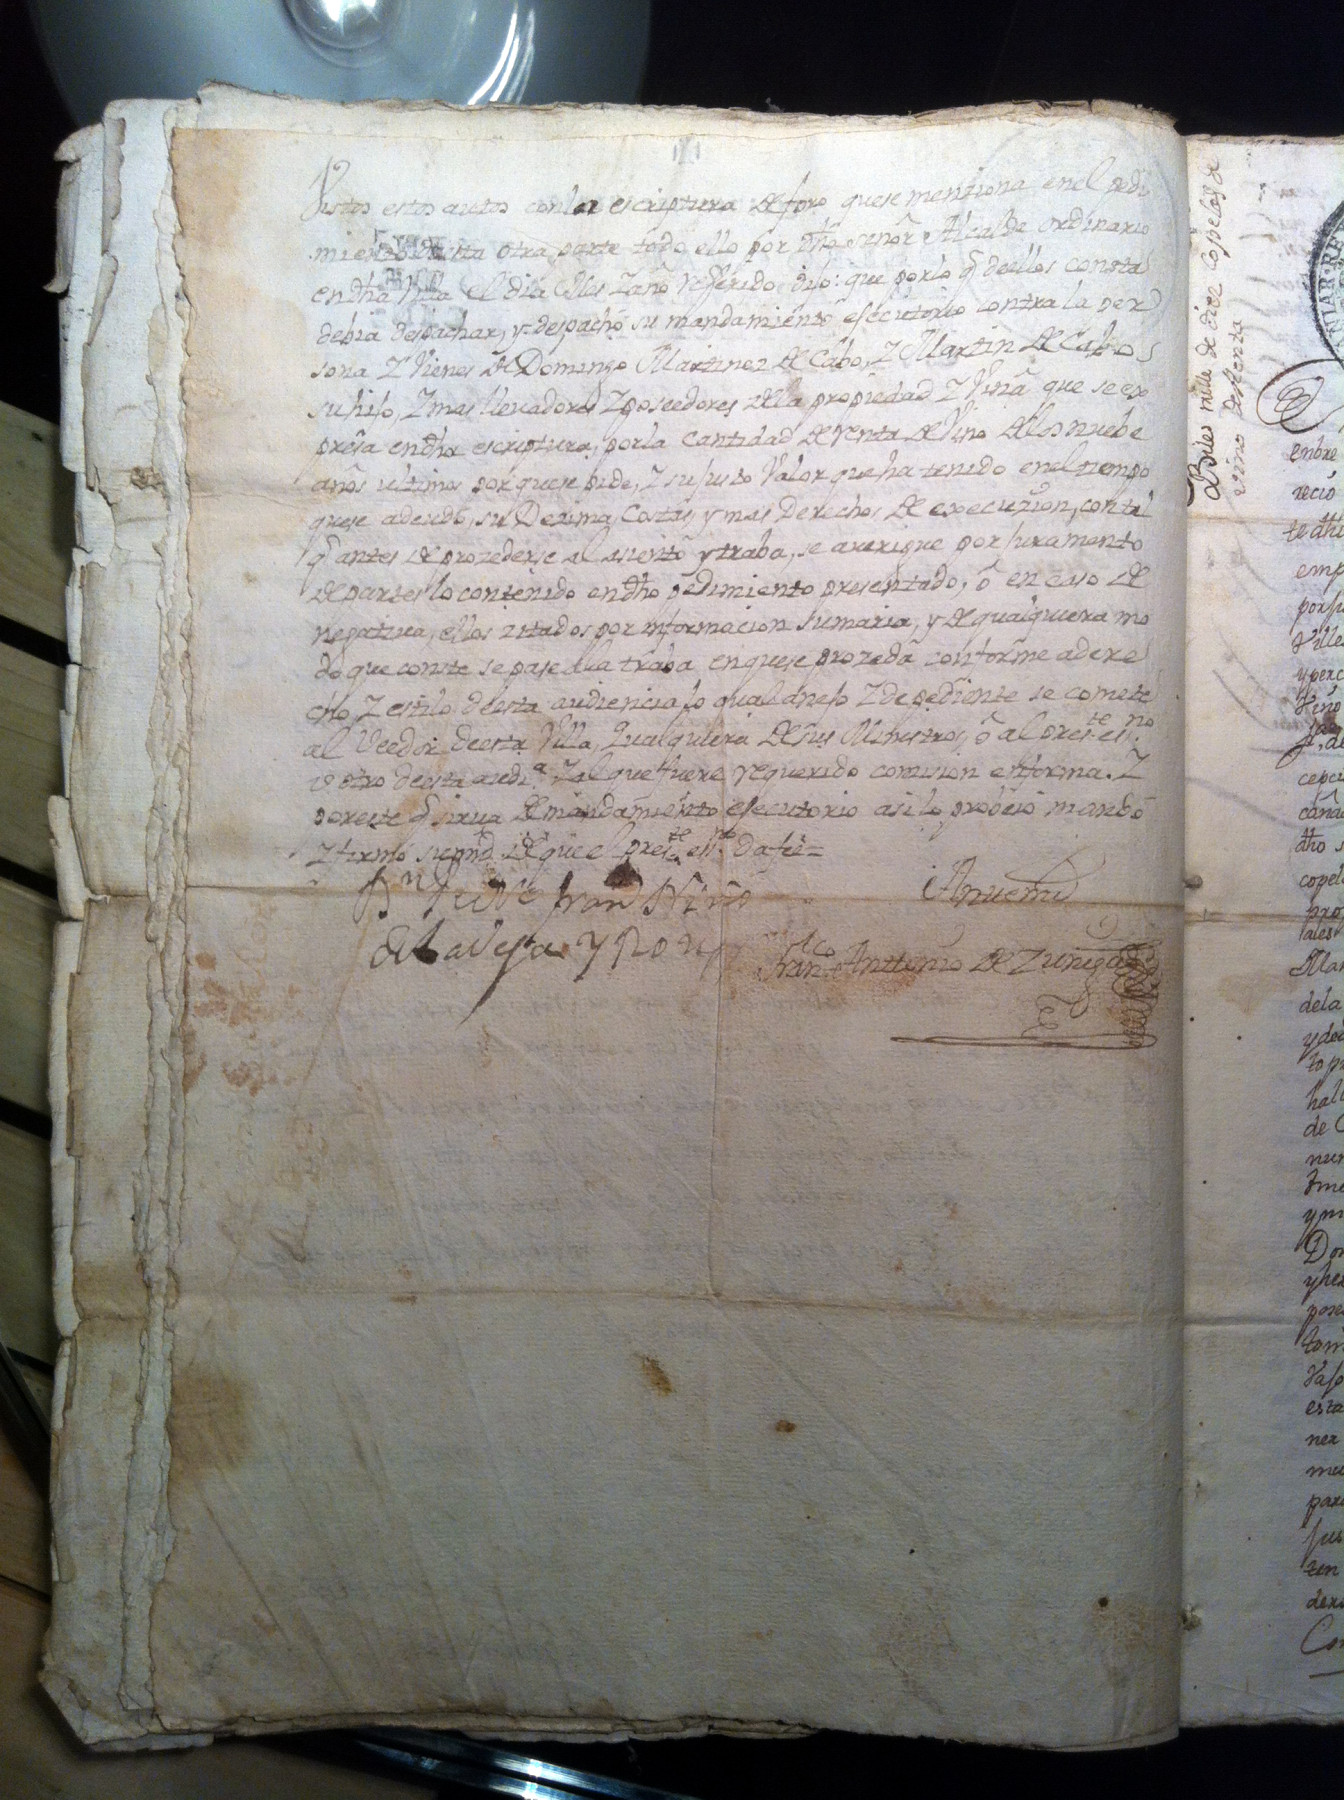 Vistos estos autos con la escriptura de foro que se menziona en el pedi
miento desta otra parte todo ello por dho señor Alcalde ordinario
en dha Villa el dia Mes Z año referido dijo: que por lo q̃ de ellos consta
debia despachar, y despachó su mandamiento esecutorio contra la per
sona Z Vienes de Domingo Martinez de Cabo, Z Martin de Cabo
su hijo, Z mas llevadores Z poseedores de la propiedad Z Viña que se ex
presa en dha escriptura, por la Cantidad de renta de Vino de los nuebe
años ultimos por que se pide, Z su justo Valor que ha tenido en el tiempo
que se adeudó, su Dezima, Costas, y mas Derechos de execuzion, con tal
q̃ antes de prozederse al asiento y traba, se averigue por juramento
de partes lo contenido en dho pedimiento presentado, ó en caso de
negativa, ellos zitados por informacion sumaria, y de qualquiera mo
do que conste se pase a la traba en que se prozeda conforme a dere
cho Z estilo de esta audiencia lo qual anejo Z dependiente se comete
al Veedor de esta Villa, qualquiera de sus Ministros, ó al pres.te es.no
u otro de esta audi.a Z al que fuere requerido comision en forma. Z
por este q̃ sirva de mandamiento esecutorio asi lo probeió mandó
Z firmó su md de que el pres.te ess.no da fee =
fran Niño
de la Vega y Ron
Antte mi
Fran.co Anttonio de Zuniga
Bies mill de diez Copelos de
vino de Renta
enbre
reció
te dhi
emp
por su
Ville
y perc
Vino
cepci
dho s
copel
pro
ales
Mar
dela
y de
to p
hal
de C
nu
y m
Don
y her
pose
tom
Vaso
esta
ner
mu
para
sus
ten
dere
Con